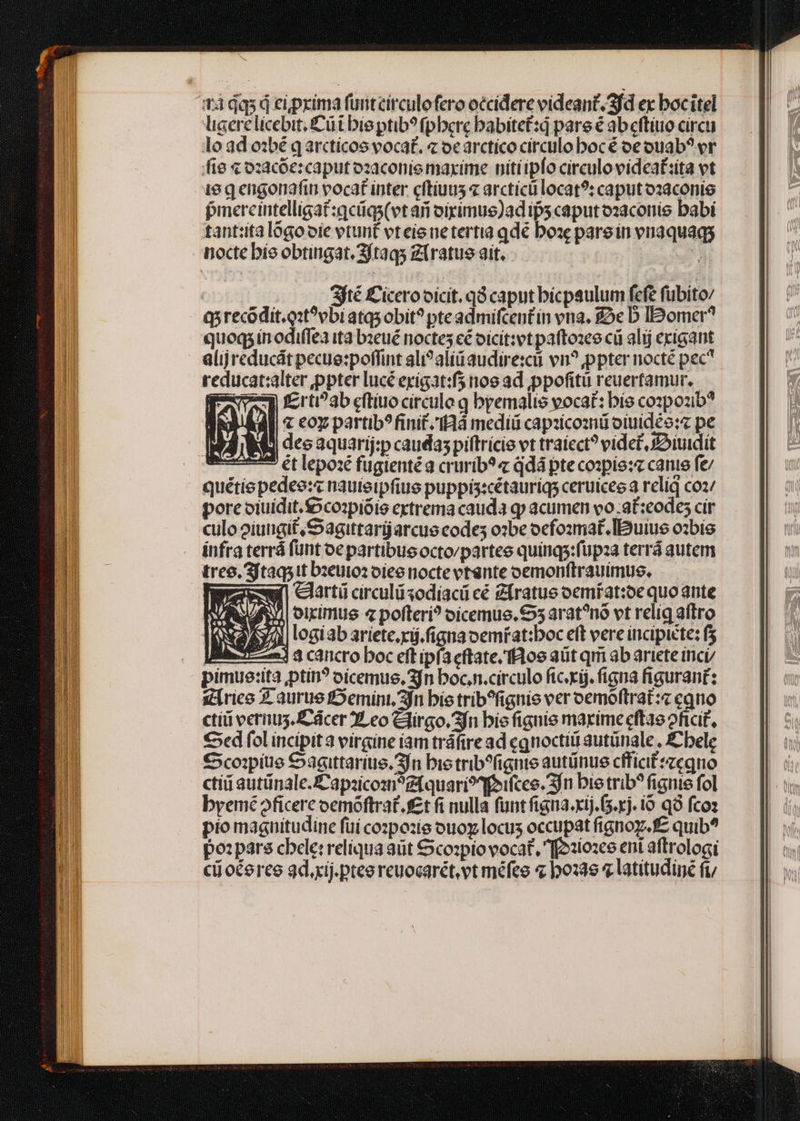 rā q̄qꝫ q̄ ei ꝓxima sunt circulo fero occidere videant᷑. Id ex hoc itel
ligere licebit. Cū i his ptibꝰ sphere habitet᷑: q̄ pars ē ab estiuo circu
lo ad orbē q arcticos vocat᷑. ⁊ de arctico circulo hoc ē de duabꝰ vr
sis ⁊ dracōe: caput draconis maxime niti ipso circulo videat᷑: ita vt
is q engonasin vocat᷑ inter estiuuꝫ ⁊ arcticū locatꝰ: caput draconis
p̄mere intelligat᷑: qcūqꝫ (vt añ diximus) ad ipꝫ caput draconis habi
tant: ita lōgo die vtunt᷑ vt eis ne tertia qdē hore pars in vnaquaqꝫ
nocte his obtingat. Itaqꝫ Aratus ait.
Itē Cicero dicit. qđ caput hic paulum sese subito/
qꝫ recōdit. ortꝰ vbi atqꝫ obitꝰ pte admiscent᷑ in vna. De h̄ Homerꝰ
quoqꝫ in odissea ita breuē nocteꝫ eē dicit: vt pastores cū alij exigant
alij reducāt pecus: possint aliꝰ aliū audire: cū vnꝰ ꝓpter noctē pecꝰ
reducat: alter ꝓpter lucē exigat: sꝫ nos ad ꝓpositū reuertamur.
Ertiꝰ ab estiuo circulo q hyemalis vocat᷑: his corporibꝰ
⁊ eoꝝ partibꝰ finit᷑. Nā mediū capricornū diuidēs: ⁊ pe
des aquarij: p caudaꝫ pistricis vt traiectꝰ videt᷑. Diuidit
ēt leporē fugientē a cruribꝰ ⁊ q̄dā pte corpis: ⁊ canis se/
quētis pedes: ⁊ nauis ipsius puppiꝫ: cētauriqꝫ ceruices a reliq̄ cor/
pore diuidit. Scorpiōis extrema cauda ꝙ acumis vocat᷑: eodeꝫ cir
culo ɔiungit᷑. Sagittarij arcus eodeꝫ orbe deformat᷑. Huius orbis
infra terrā sunt de partibus octo/partes quinqꝫ: supra terrā autem
tres. Itaqꝫ it breuior dies nocte vt ante demonstrauimus.
Uartū circulū zodiacū eē Aratus demr̄at: de quo ante
diximus ⁊ posteriꝰ dicemus. Sꝫ aratꝰ nō vt reliq astro
logi ab ariete. xij. signa demr̄at: hoc est vere incipiēte: sꝫ
a cancro hoc est ipsa estate. Nos aūt qm̄ ab ariete inci/
pimus: ita ꝓtinꝰ dicemus. In hoc. n. circulo sic. xij. signa figurant᷑:
Aries Taurus Gemini. In his tribꝰ signis ver demōstrat᷑: ⁊ eqno
ctiū vernuꝫ. Cācer Leo Uirgo. In his signis maxime estas ɔficit᷑.
Sed sol incipit a virgine iam trāsire ad eqnoctiū autūnale. Chele
Scorpius Sagittarius. In his tribꝰ signis autūnus efficit᷑: ⁊ eqno
ctiū autūnale. Capricornꝰ Aquariꝰ Pisces. In his tribꝰ signis sol
hyemē ɔficere demōstrat᷑. Et si nulla sunt signa. xij. sꝫ. xj. iō qđ scor
pio magnitudine sui corporis duoꝝ locuꝫ occupat signoꝝ. E quibꝰ
por pars chele: reliqua aūt Scorpio vocat᷑. Priores eni astrologi
cū oēs res ad. xij. ptes reuocarēt. vt mēses ⁊ horas ⁊ latitudinē si/